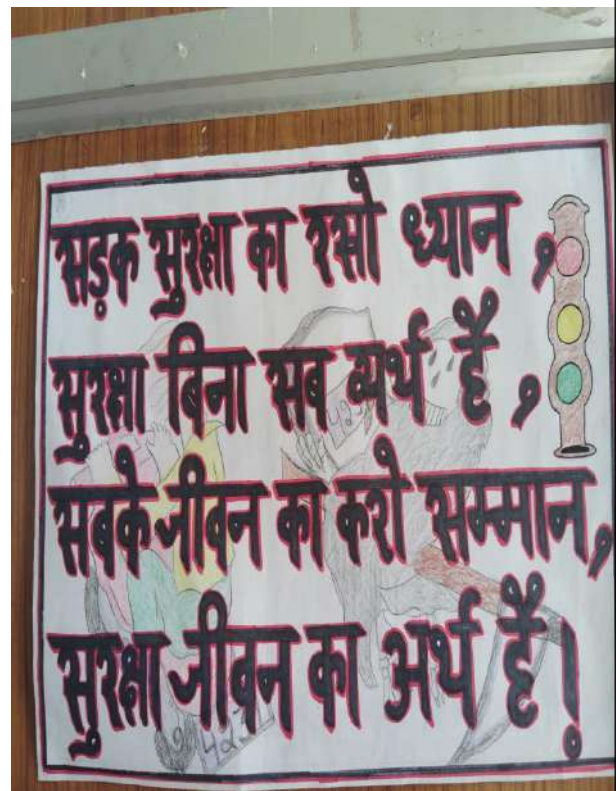 सड़क सुरक्षा का रखो ध्यान,
सुरक्षा बिना सब व्यर्थ है,
सबके जीवन का करो सम्मान,
सुरक्षा जीवन का अर्थ है!
423